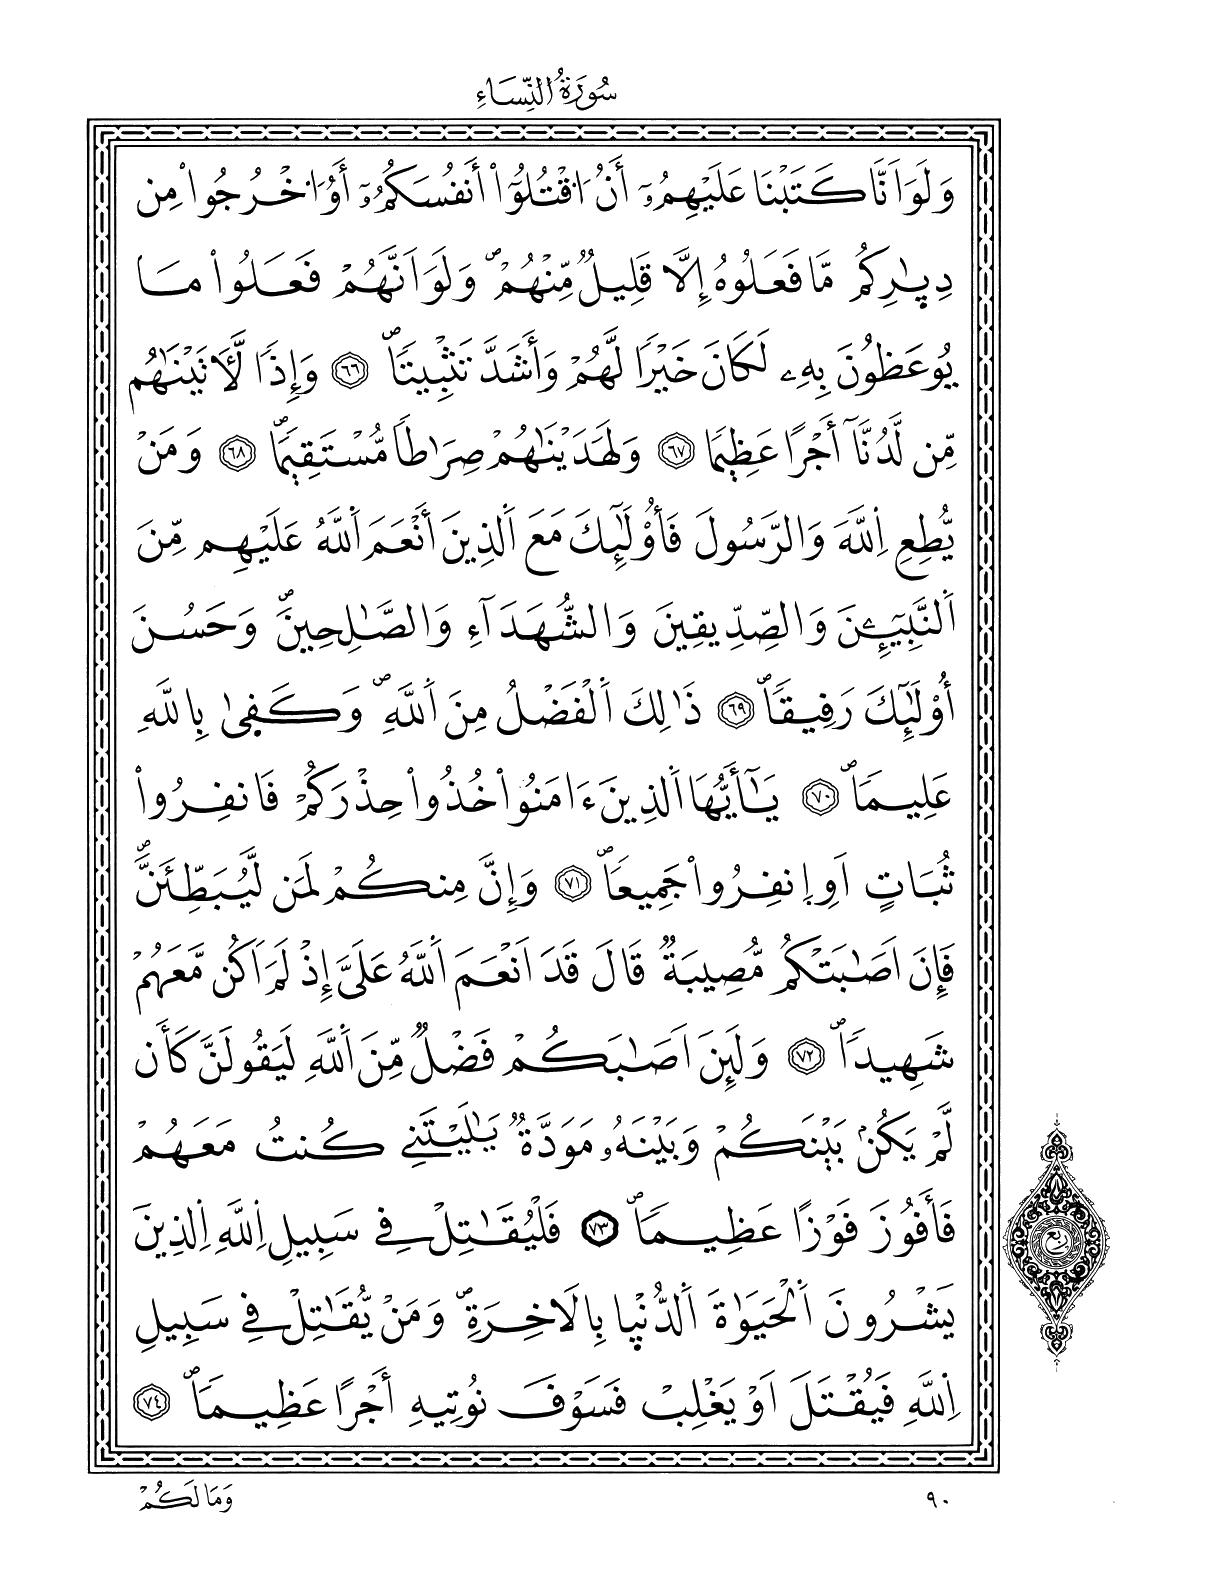 سُورَةُ النِّسَاءِ
وَلَوَ اَنَّا كَتَبْنَا عَلَيْهِمُۥٓ أَنُ اُقْتُلُوٓاْ أَنفُسَكُمُۥٓ أَوُ اُخْرُجُواْ مِن
دِيٰ۪رِكُم مَّا فَعَلُوهُ إِلَّا قَلِيلٌ مِّنْهُمْۖ وَلَوَ اَنَّهُمْ فَعَلُواْ مَا
يُوعَظُونَ بِهِۦ لَكَانَ خَيْرًا لَّهُمْ وَأَشَدَّ تَثْبِيتًاۖ ٦٦ وَإِذًا لَّأٓتَيْنَٰهُم
مِّن لَّدُنَّآ أَجْرًا عَظِيمًا ٦٧ وَلَهَدَيْنَٰهُمْ صِرَٰطًا مُّسْتَقِيمًاۖ ٦٨ وَمَنْ
يُّطِعِ اِللَّهَ وَالرَّسُولَ فَأُوْلَٰٓئِكَ مَعَ اَلذِينَ أَنْعَمَ اَللَّهُ عَلَيْهِم مِّنَ
اَلنَّبِيٓـِٕينَ وَالصِّدِّيقِينَ وَالشُّهَدَآءِ وَالصَّٰلِحِينَۖ وَحَسُنَ
أُوْلَٰٓئِكَ رَفِيقًاۖ ٦٩ ذَٰلِكَ اَلْفَضْلُ مِنَ اَللَّهِۖ وَكَف۪يٰ بِاللَّهِ
عَلِيمًاۖ ٧٠ يَٰٓأَيُّهَا اَلذِينَ ءَامَنُواْ خُذُواْ حِذْرَكُمْ فَانفِرُواْ
ثُبَاتٍ اَوِ اِنفِرُواْ جَمِيعًاۖ ٧١ وَإِنَّ مِنكُمْ لَمَن لَّيُبَطِّئَنَّۖ
فَإِنَ اَصَٰبَتْكُم مُّصِيبَةٌ قَالَ قَدَ اَنْعَمَ اَللَّهُ عَلَيَّ إِذْ لَمَ اَكُن مَّعَهُمْ
شَهِيدًاۖ ٧٢ وَلَئِنَ اَصَٰبَكُمْ فَضْلٌ مِّنَ اَللَّهِ لَيَقُولَنَّ كَأَن
لَّمْ يَكُنۢ بَيْنَكُمْ وَبَيْنَهُۥ مَوَدَّةٌ يَٰلَيْتَنِے كُنتُ مَعَهُمْ
فَأَفُوزَ فَوْزًا عَظِيمًاۖ ٧٣ فَلْيُقَٰتِلْ فِے سَبِيلِ اِللَّهِ اِلذِينَ
يَشْرُونَ اَلْحَيَوٰةَ اَلدُّنْي۪ا بِالَاخِرَةِۖ وَمَنْ يُّقَٰتِلْ فِے سَبِيلِ
اِللَّهِ فَيُقْتَلَ اَوْ يَغْلِبْ فَسَوْفَ نُوتِيهِ أَجْرًا عَظِيمًاۖ ٧٤
ربع
وَمَا لَكُمْ
٩٠